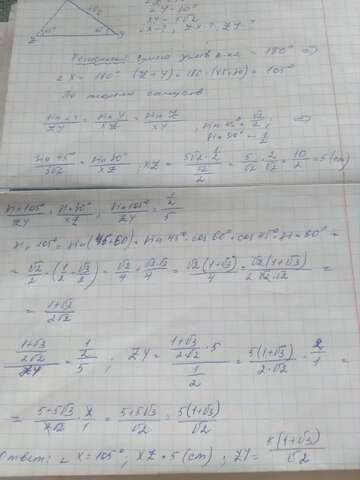 5√2
Z 45° 30° Y
∠Y = 30°
XY = 5√2
∠X - ?, XZ - ?, ZY - ?
сумма углов = 180° ⇒
∠X = 180° - (Z+Y) = 180 - (45+30) = 105°
По теореме синусов
sin X / ZY = sin Y / XZ = sin Z / XY, sin 45° = √2/2; sin 30° = 1/2 ⇒
sin 45° / 5√2 = sin 30° / XZ; XZ = (5√2 · 1/2) / (√2/2) = 5/√2 · 2/√2 = 10/2 = 5 (cm)
sin 105° / ZY = sin 30° / XZ; sin 105° / ZY = (1/2) / 5
sin 105° = sin(45+60) = sin 45° · cos 60° + cos 45° · sin 60° =
= √2/2 · (1/2 + √3/2) = √2/4 + √2·√3/4 = √2(1+√3)/4 = √2(1+√3) / 2·√2·√2 =
= (1+√3) / 2√2
((1+√3) / 2√2) / ZY = (1/2) / 5; ZY = ((1+√3) / 2√2 · 5) / (1/2) = 5(1+√3) / 2·√2 · 2/1 =
= (5+5√3) / 2√2 · 2/1 = (5+5√3) / √2 = 5(1+√3) / √2
Ответ: ∠X = 105°, XZ = 5 (cm); ZY = 5(1+√3) / √2